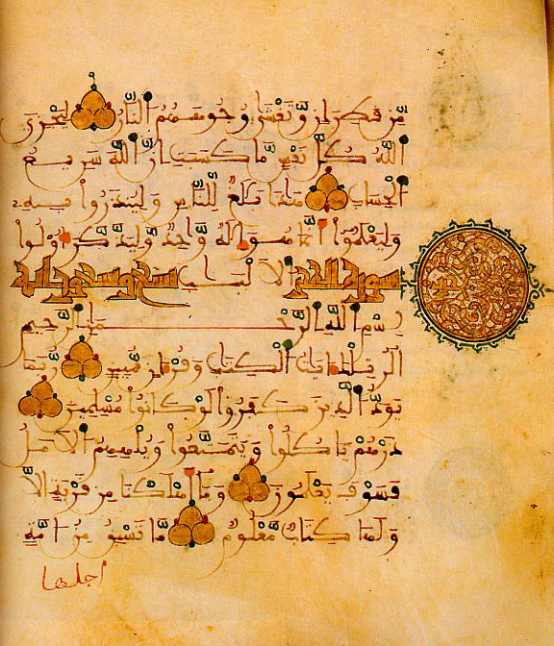 مِّن قَطِرَانٍ وَّتَغْشَىٰ وُجُوهَهُمُ النَّارُ لِيَجْزِيَ
اَللَّهُ كُلَّ نَفْسٍ مَّا كَسَبَتِ اِنَّ اَللَّهَ سَرِيعُ
الْحِسَابِ هَٰذَا بَلَٰغٌ لِّلنَّاسِ وَلِيُنذَرُوا بِهِ
وَلِيَعْلَمُوا أَنَّمَا هُوَ إِلَٰهٌ وَّاحِدٌ وَّلِيَذَّكَّرَ أُوْلُوا
سورة الحجر الَالْبَٰبِ تسع وتسعون اية
بِسْمِ اللَّهِ الرَّحْمَٰنِ الرَّحِيمِ
الَرَ تِلْكَ ءَايَٰتُ الْكِتَٰبِ وَقُرْءَانٍ مُّبِينٍ رُّبَمَا
يَوَدُّ الَّذِينَ كَفَرُوا لَوْ كَانُوا مُسْلِمِينَ
ذَرْهُمْ يَاكُلُوا وَيَتَمَتَّعُوا وَيُلْهِهِمُ الَامَلُ
فَسَوْفَ يَعْلَمُونَ وَمَا أَهْلَكْنَا مِن قَرْيَةٍ اِلَّا
وَلَهَا كِتَابٌ مَّعْلُومٌ مَّا تَسْبِقُ مِنُ امَّةٍ
اجلها